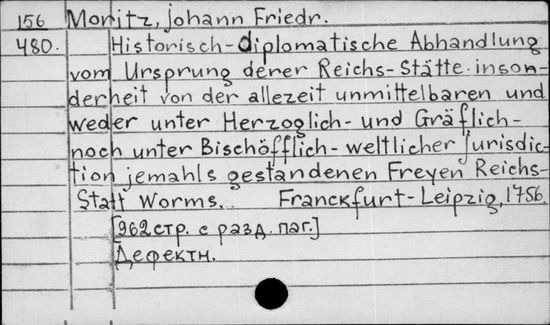 156 Moritz, Johann Friedr.
480. Historisch-diplomatische Abhandlung
vom Ursprung derer Reichs-Stätte insonderheit von der allezeit unmittelbaren und
weder unter Herzoglich- und Gräflich-
noch unter Bischöfflich-weltlicher Jurisdiction jemahls gestandenen Freyen Reichs-
Statt Worms. Franckfurt-Leipzig, 1756.
[962 стр. с разд. паг.]
Дефектн.